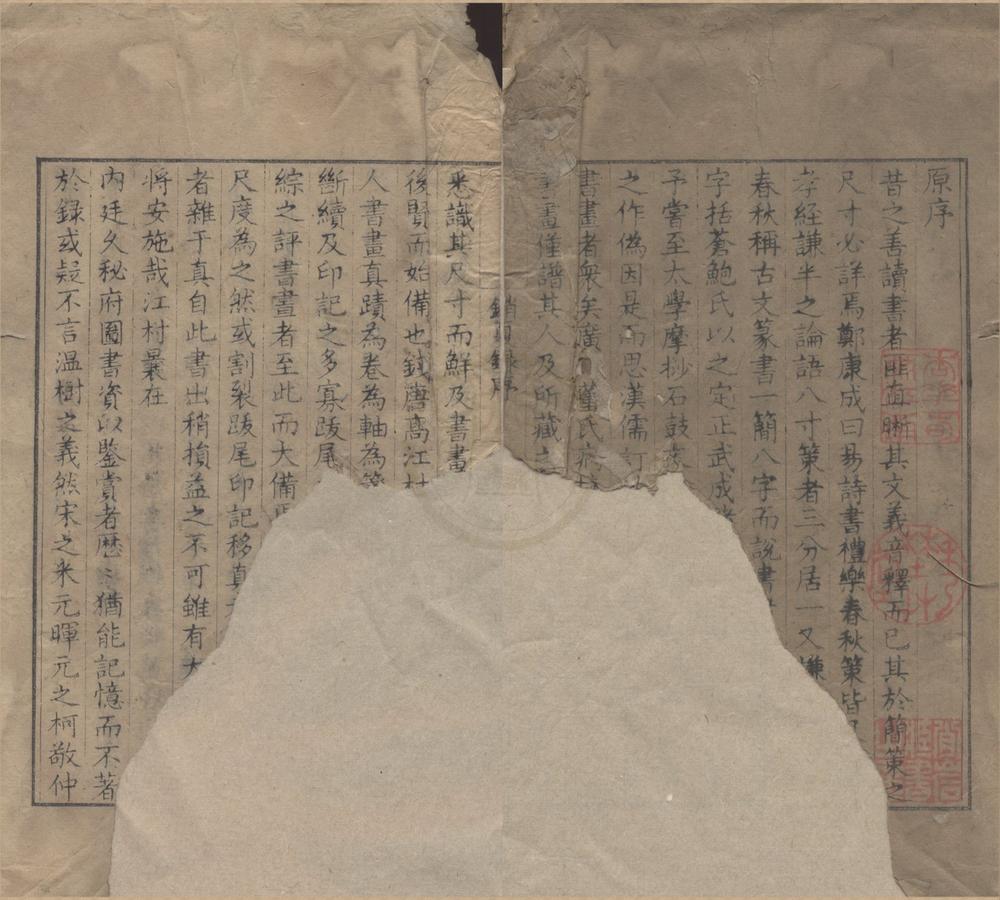 原序
昔之善讀書者匪直晰其文義音釋而已其於簡策之
尺寸必詳焉鄭康成曰易詩書禮樂春秋策皆
孝經謙半之論語八寸策者三分居一又謙
春秋稱古文篆書一簡八字而說書
字括蒼鮑氏以之定正武成
予嘗至太學摩挲石鼓
之作偽因是而思漢儒訂
書畫者衆矣廣 董氏
畫僅譜其人及所藏
銷夏錄序
悉識其尺寸而鮮及書畫
後賢而始備也錢唐高江村
人書畫真蹟為卷為軸為
斷續及印記之多寡跋尾
綜之評書畫者至此而大備
尺度為之然或割裂跋尾印記移真
者雜于真自此書出稍損益之不可雖有
將安施哉江村曩在
內廷久秘府圖書資以鑒賞者歷 猶能記憶而不著
於錄或疑不言溫樹之義然宋之米元暉元之柯敬仲